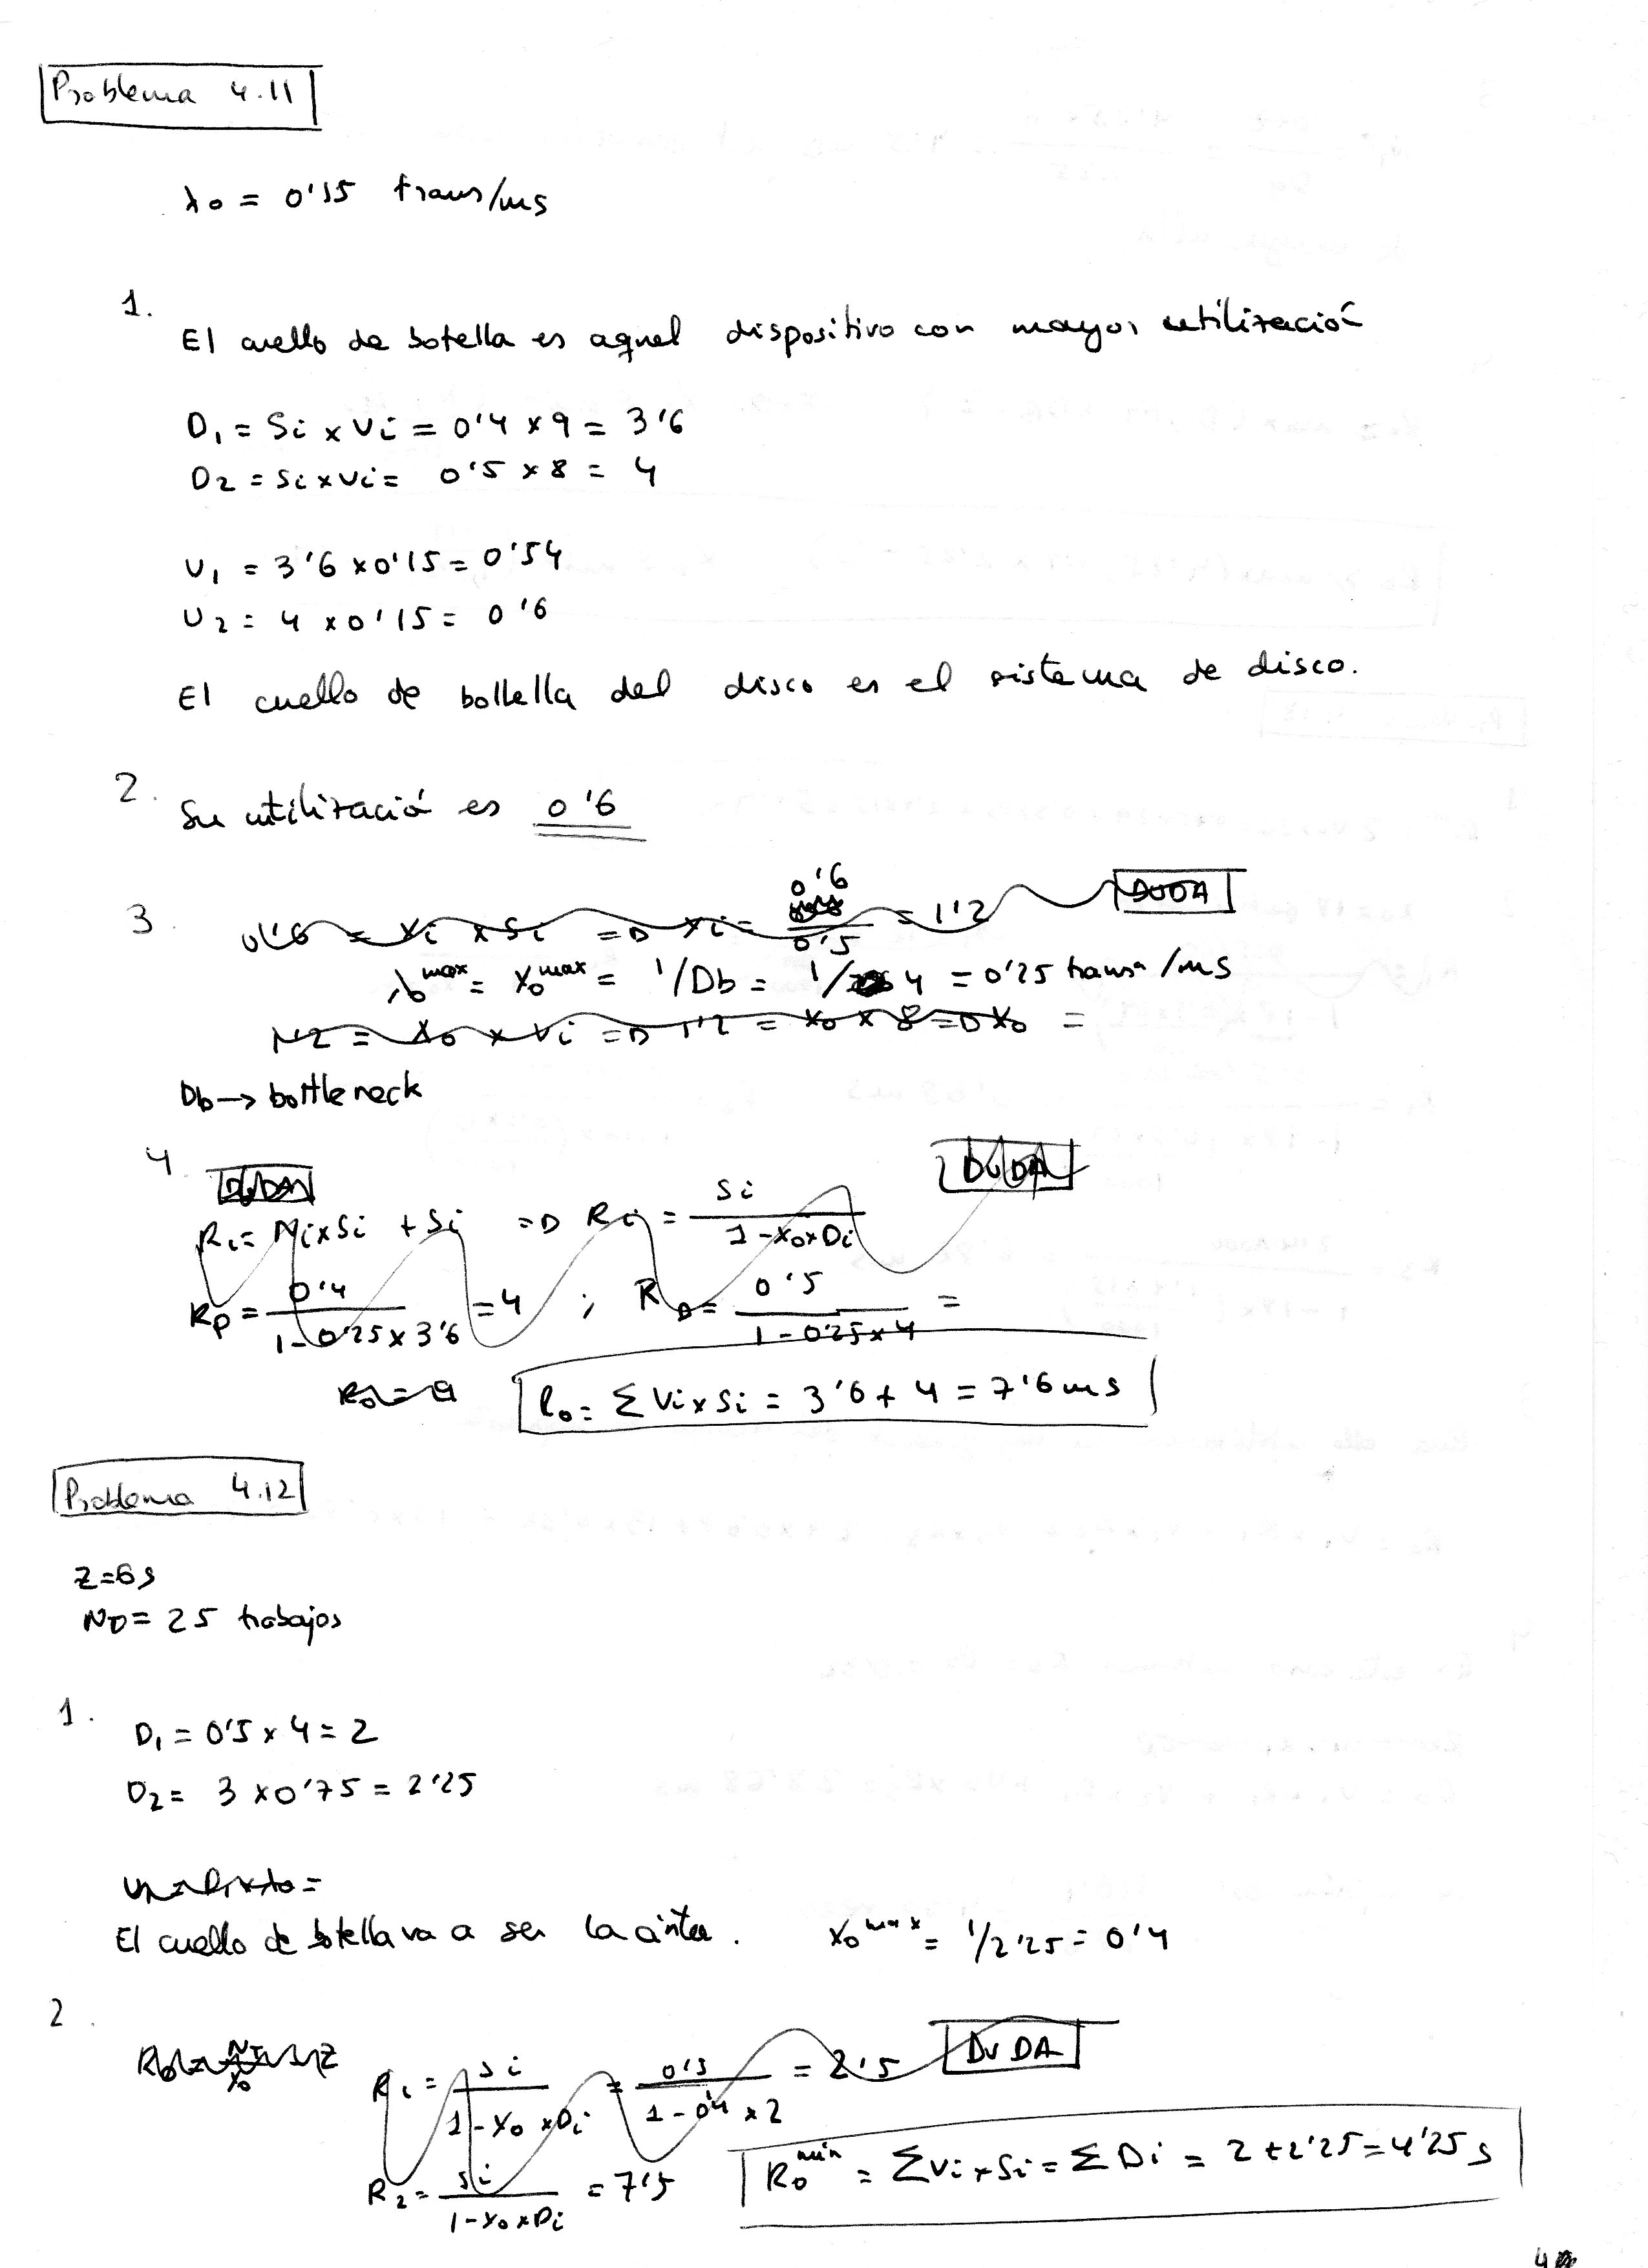 Problema 4.11
λo = 0'15 trans/ms
1.
El cuello de botella es aquel dispositivo con mayor utilización
D1 = Si x Vi = 0'4 x 9 = 3'6
D2 = Si x Vi = 0'5 x 8 = 4
U1 = 3'6 x 0'15 = 0'54
U2 = 4 x 0'15 = 0'6
El cuello de botella del disco es el sistema de disco.
2. Su utilización es 0'6
3. 0'6 = Xi x Si => Xi = 0'6 / 0'5 = 1'2 DUDA
λo^max = Xo^max = 1/Db = 1/4 = 0'25 trans /ms
1'2 = Xo x Vi => 1'2 = Xo x 8 => Xo =
Db → bottleneck
4. DUDA
Ri = Ni x Si + Si => Ri = Si / 1 - Xo x Di DUDA
Rp = 0'4 / 1 - 0'25 x 3'6 = 4 ; RD = 0'5 / 1 - 0'25 x 4 =
Ro = Σ Vi x Si = 3'6 + 4 = 7'6 ms
Problema 4.12
Z = 6s
NT = 25 trabajos
1.
D1 = 0'5 x 4 = 2
D2 = 3 x 0'75 = 2'25
El cuello de botella va a ser la cinta. Xo^max = 1/2'25 = 0'4
2.
Ri = Si / 1 - Xo x Di = 0'5 / 1 - 0'4 x 2 = 2'5 DUDA
R2 = Si / 1 - Xo x Di = 7'5
Ro^min = Σ Vi x Si = Σ Di = 2 + 2'25 = 4'25 s